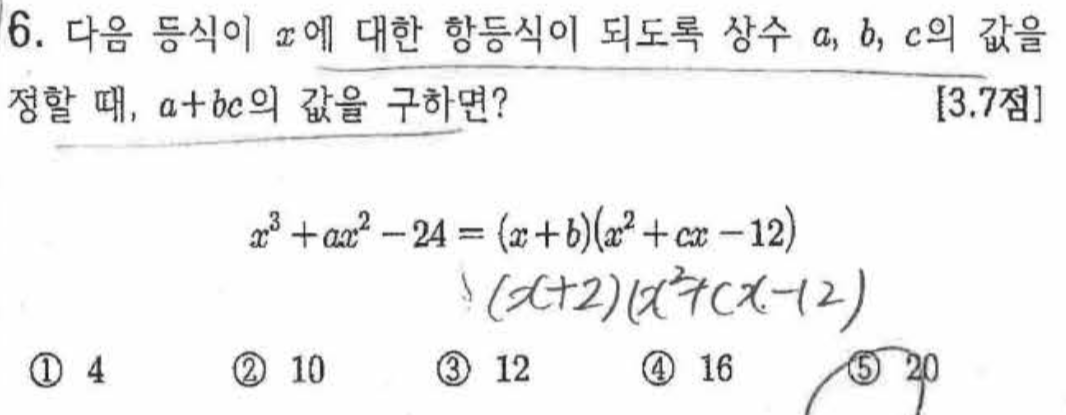 6. 다음 등식이 x에 대한 항등식이 되도록 상수 a, b, c의 값을
정할 때, a+bc의 값을 구하면? [3.7점]
x³+ax²-24=(x+b)(x²+cx-12)
(x+2)(x²+cx-12)
① 4 ② 10 ③ 12 ④ 16 ⑤ 20